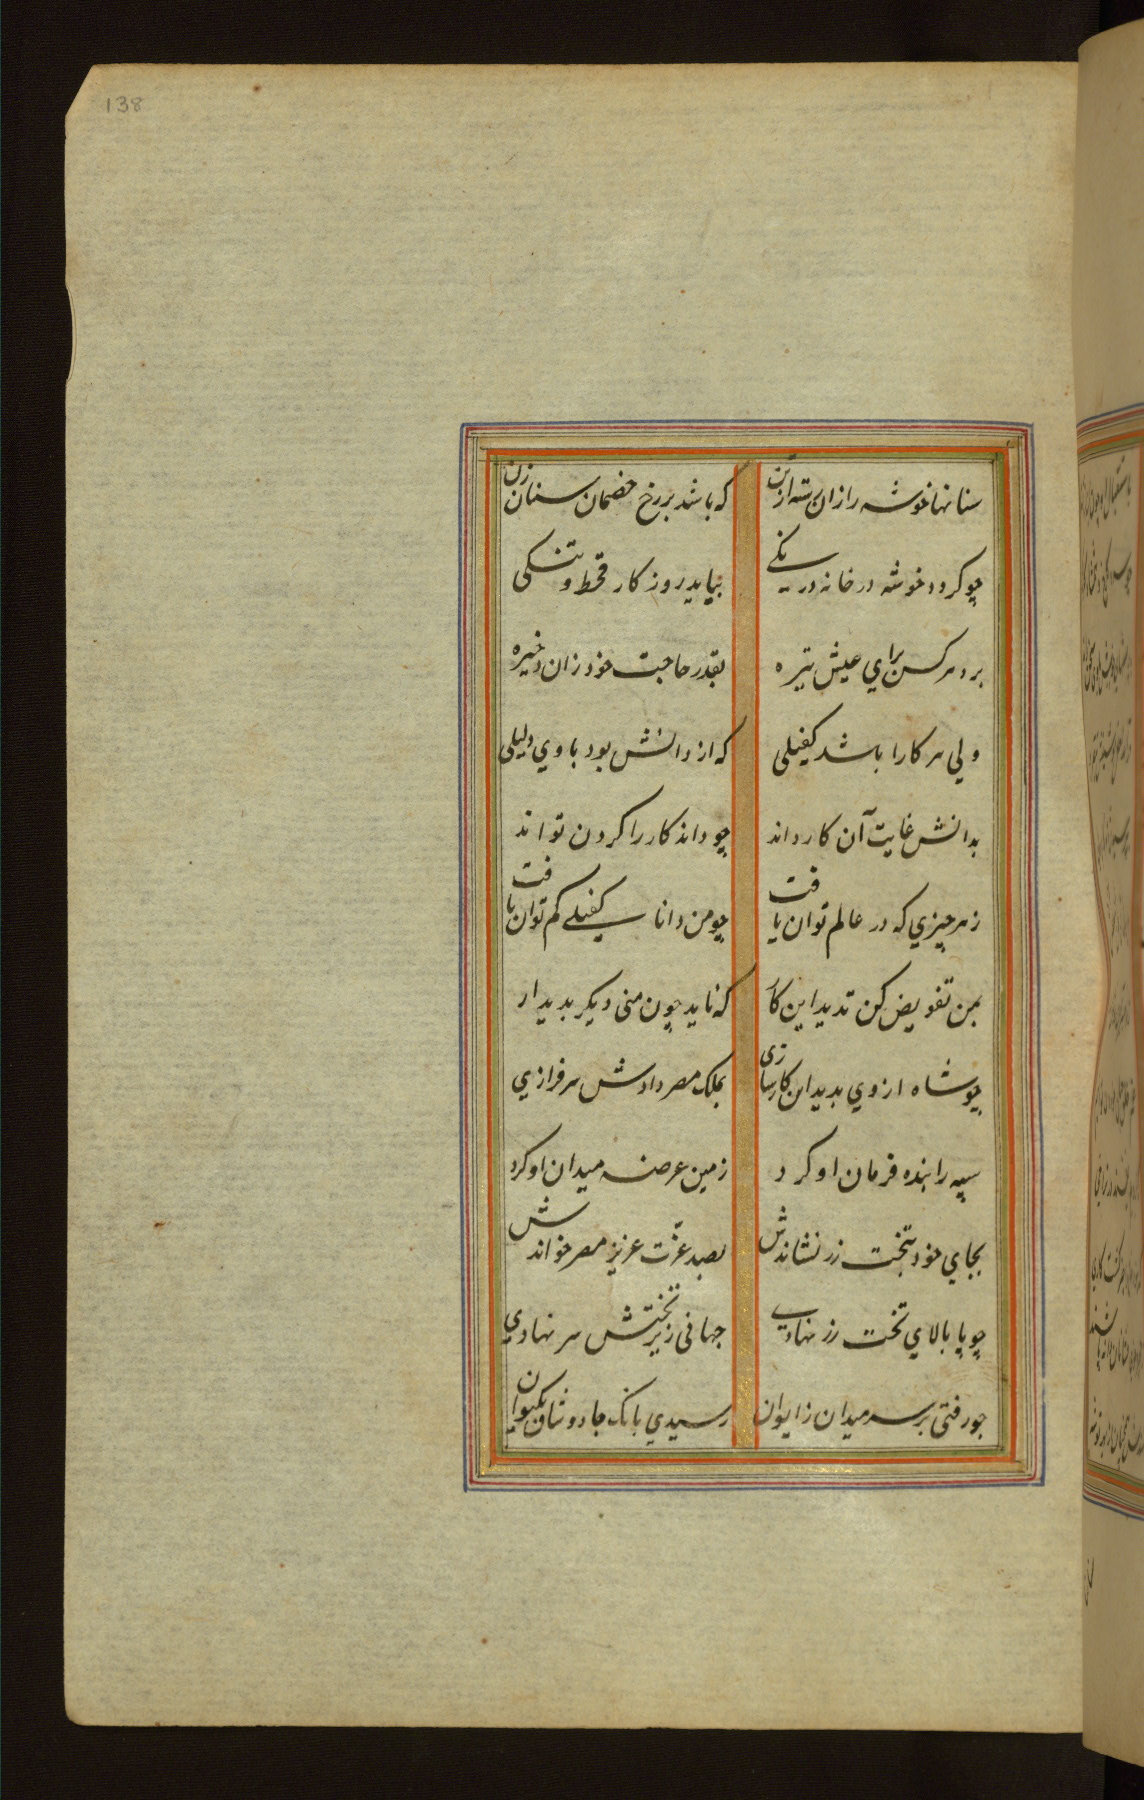 138
سنانها خوشه را زان رسته از تن
که باشد بر رخ خصمان سنان زن
چو کردد خوشه در خانه درنکی
بیاید روز کار قحط و تنکی
برد هر کس برای عیش تیره
بقدر حاجت خود زان ذخیره
ولی هر کار را باشد کفیلی
که از دانش بود با وی دلیلی
بدانش غایت آن کار داند
چو داند کار را کردن تواند
ز هر چیزی که در عالم توان یافت
چو من دانا کفیلی کم توان یافت
بمن تفویض کن تدبیر این کار
که ناید چون منی دیکر بدیدار
چو شاه از وی بدید این کارسازی
بملک مصر دادش سرفرازی
سپه را بنده فرمان او کرد
زمین عرصه میدان او کرد
بجای خود بتخت زر نشاندش
بصد عزّت عزیز مصر خواندش
چو پا بالای تخت زر نهادی
جهانی زیر تختش سر نهادی
چو رفتی بر سر میدان ز ایوان
رسیدی بانک جاووشان بکیوان